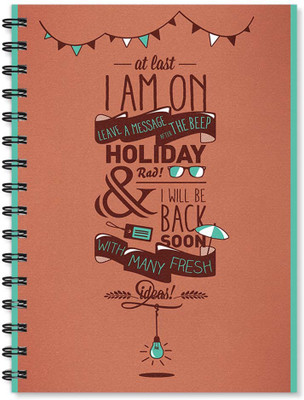 at last
I AM ON
LEAVE A MESSAGE AFTER THE BEEP
HOLIDAY
Rad!
& I WILL BE
BACK
SOON
WITH MANY FRESH
ideas!